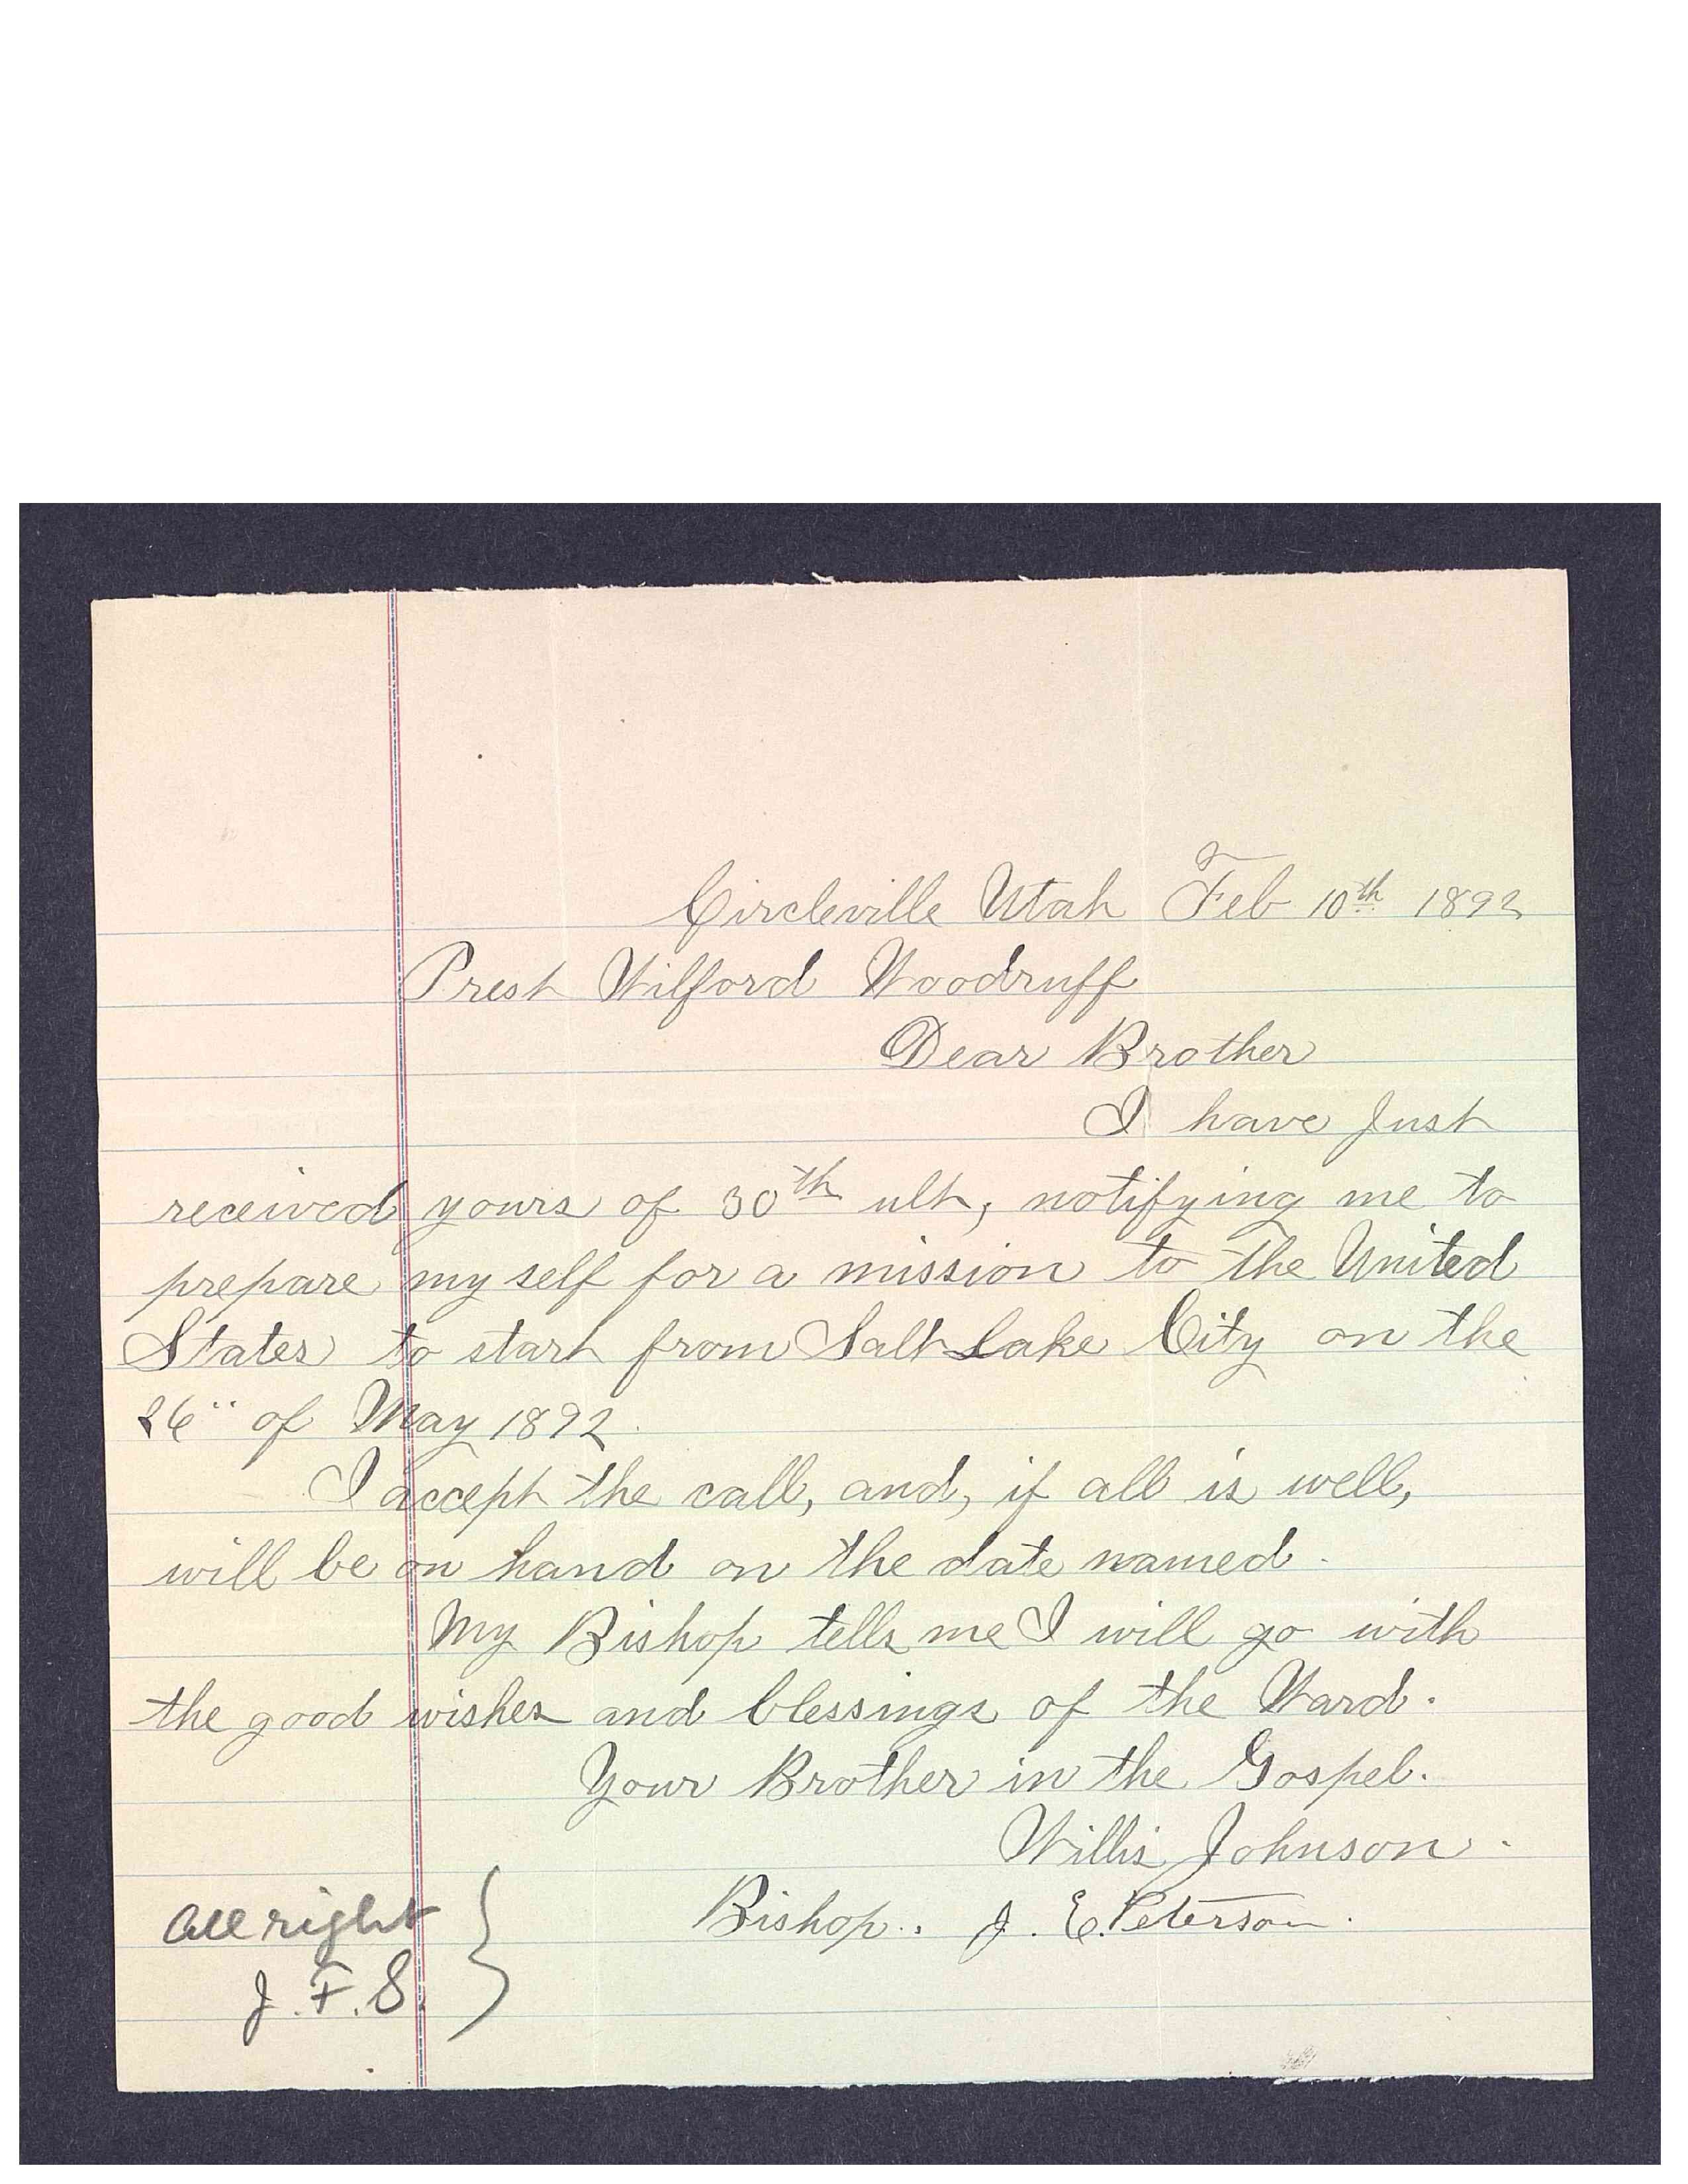 Circleville Utah Feb 10th 1892
Prest Wilford Woodruff
Dear Brother
I have Just
received yours of 30th ult, notifying me to
prepare my self for a mission to the United
States to start from Salt Lake City on the
26" of May 1892.
I accept the call, and, if all is well,
will be on hand on the date named.
My Bishop tells me I will go with
the good wishes and blessings of the Ward.
Your Brother in the Gospel.
Willis Johnson.
Bishop. J. E. Peterson.
All right
J. F. S.